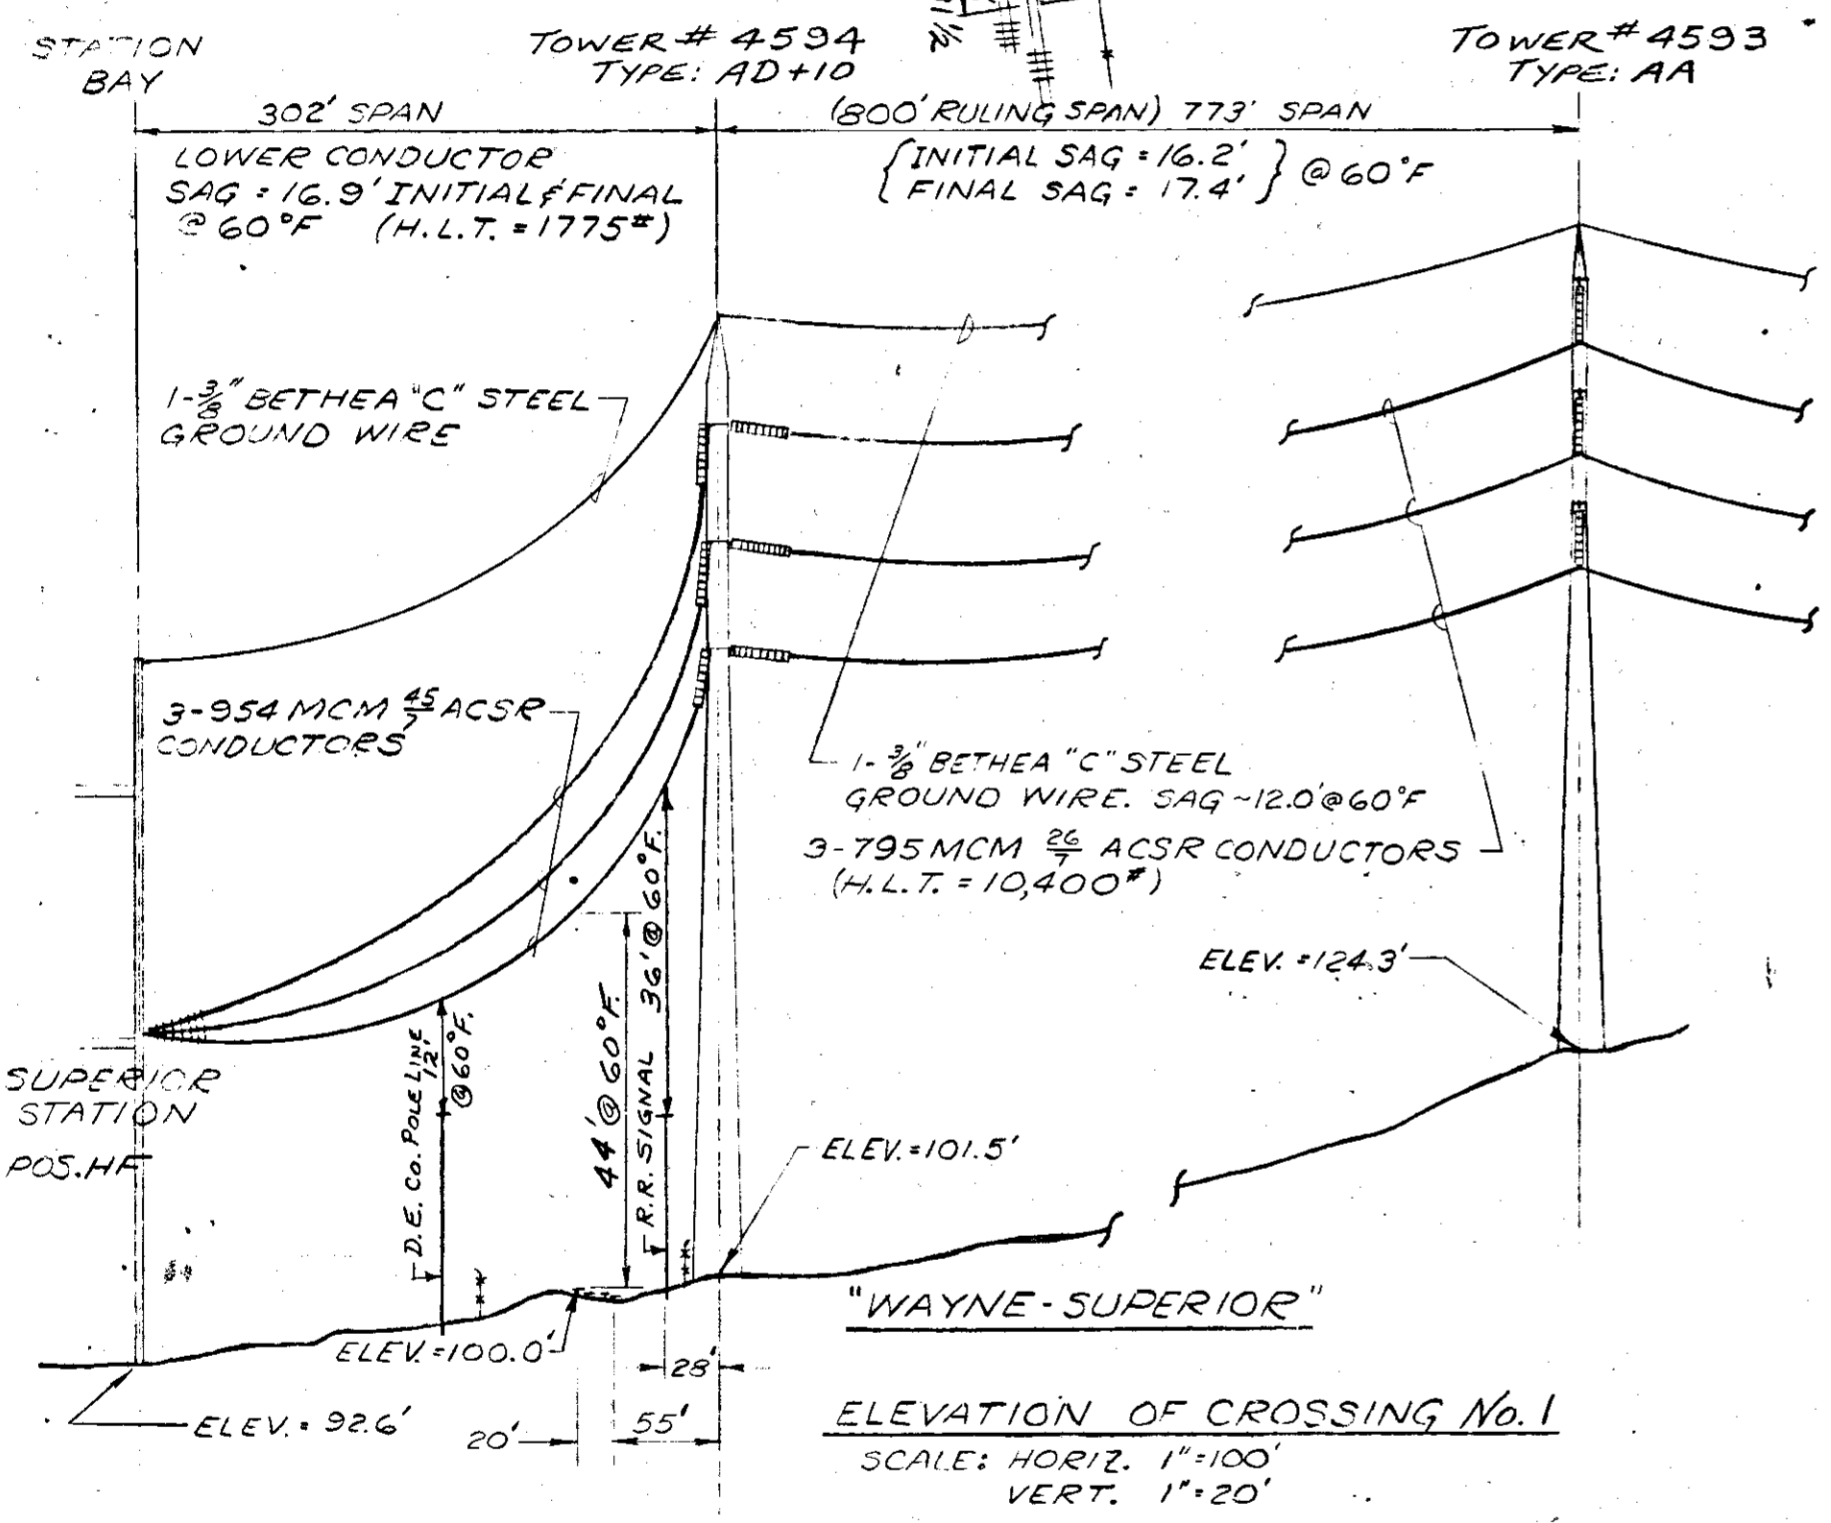 STATION
BAY
TOWER # 4594
TYPE: AD+10
11 1/2
TOWER # 4593
TYPE: AA
302' SPAN
(800' RULING SPAN) 773' SPAN
LOWER CONDUCTOR
SAG = 16.9' INITIAL & FINAL
@ 60°F (H.L.T. = 1775#)
{INITIAL SAG = 16.2'
FINAL SAG = 17.4'} @ 60°F
1-3/8" BETHEA "C" STEEL
GROUND WIRE
3-954 MCM 45/7 ACSR
CONDUCTORS
1-3/8" BETHEA "C" STEEL
GROUND WIRE. SAG ~12.0' @ 60°F
3-795 MCM 26/7 ACSR CONDUCTORS
(H.L.T. = 10,400#)
ELEV. = 124.3'
SUPERIOR
STATION
POS. HF
D.E. CO. POLE LINE
12'
@ 60°F.
44' @ 60°F.
R.R. SIGNAL 36' @ 60°F.
ELEV. = 101.5'
"WAYNE-SUPERIOR"
ELEV. = 100.0'
28'
ELEV. = 92.6'
20'
55'
ELEVATION OF CROSSING No. 1
SCALE: HORIZ. 1" = 100'
VERT. 1" = 20'